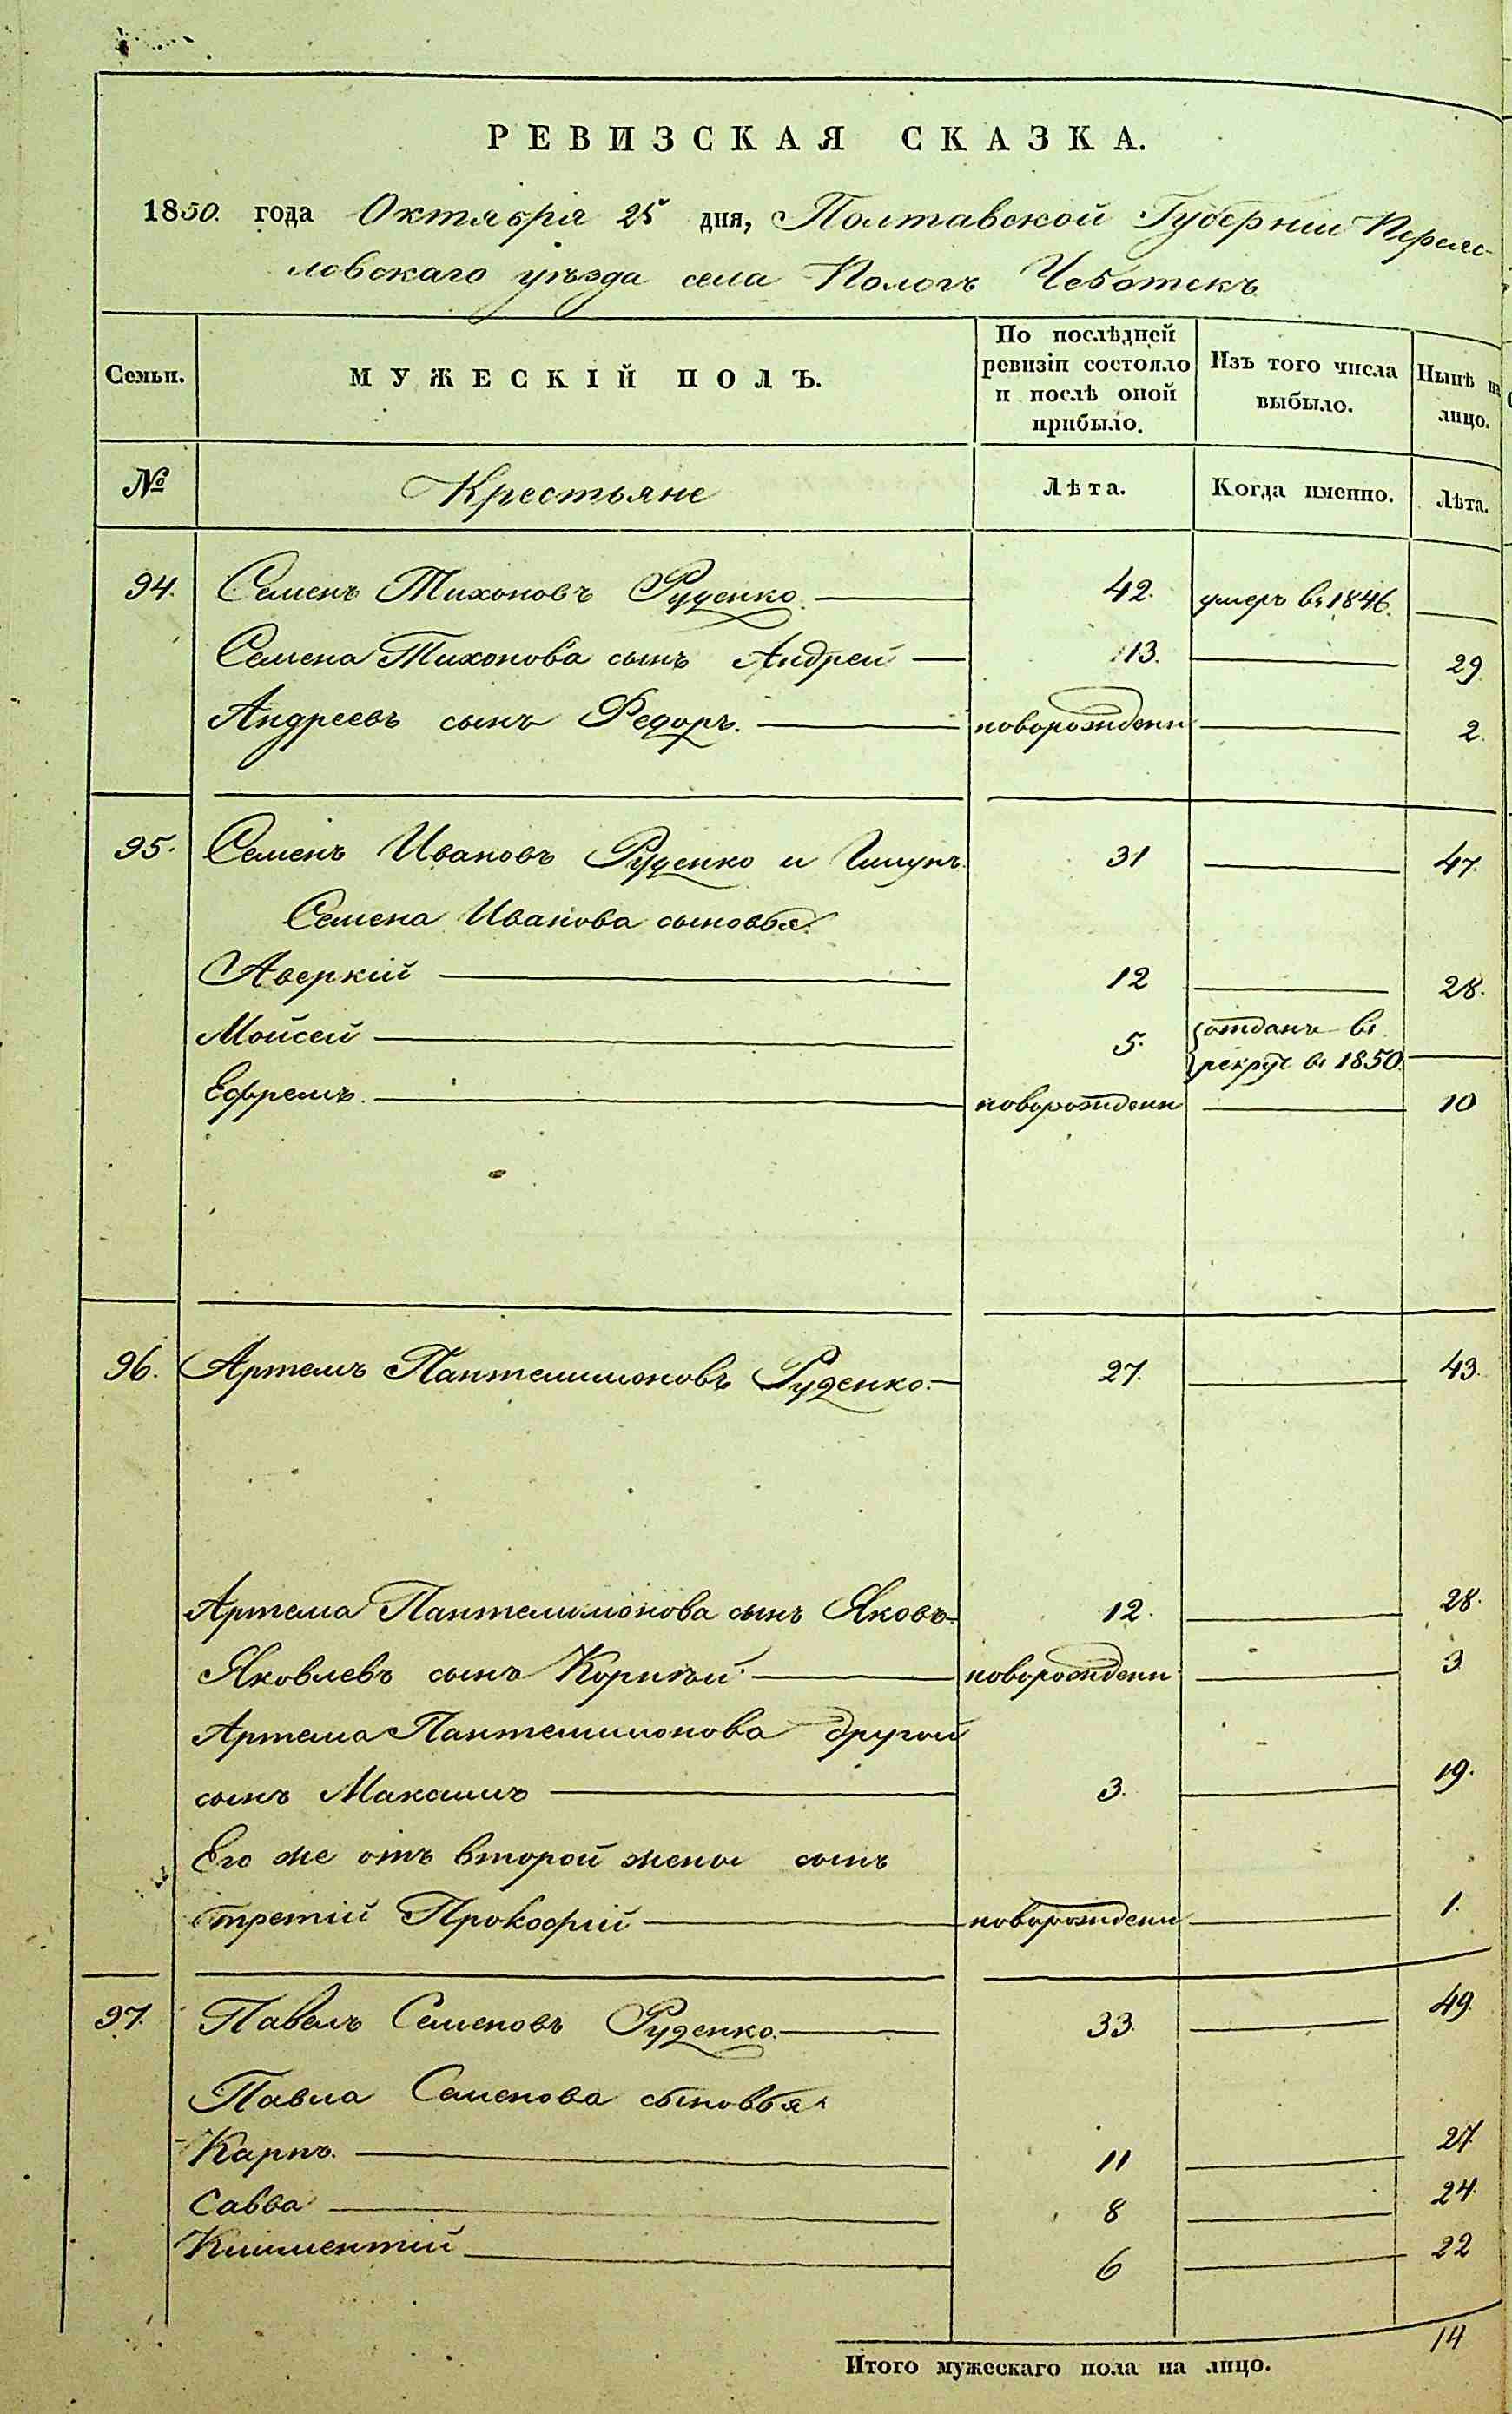 РЕВИЗСКАЯ СКАЗКА.
1850. года Октября 25 дня, Полтавской Губернии Переяс-
ловскаго уѣзда села Пологъ Чеботекъ
Семьи.
МУЖЕСКІЙ ПОЛЪ.
По послѣдней ревизіи состояло и послѣ оной прибыло.
Изъ того числа выбыло.
Нынѣ на лицо.
№ Крестьяне Лѣта. Когда именно. Лѣта.
94. Семенъ Тихоновъ Руденко 42. умеръ въ 1846.
Семена Тихонова сынъ Андрей 13. 29
Андреевъ сынъ Федоръ. новорожденн 2.
95. Семенъ Ивановъ Руденко и 31 47.
Семена Иванова сыновья:
Аверкій 12 28.
Моисей 5. отданъ въ
рекрут въ 1850.
Ефремъ. новорожденн 10
96. Артемъ Пантелимоновъ Руденко. 27. 43.
Артема Пантелимонова сынъ Яковъ 12. 28.
Яковлевъ сынъ Корнѣй новорожденн 3
Артема Пантелимонова другой
сынъ Максимъ 3. 19.
Его же отъ второй жены сынъ
третій Прокофій новорожденн 1.
97. Павелъ Семеновъ Руденко. 33. 49.
Павла Семенова сыновья
Карпъ. 11 27.
Савва 8 24.
Климентій 6 22
Итого мужескаго пола на лицо. 14